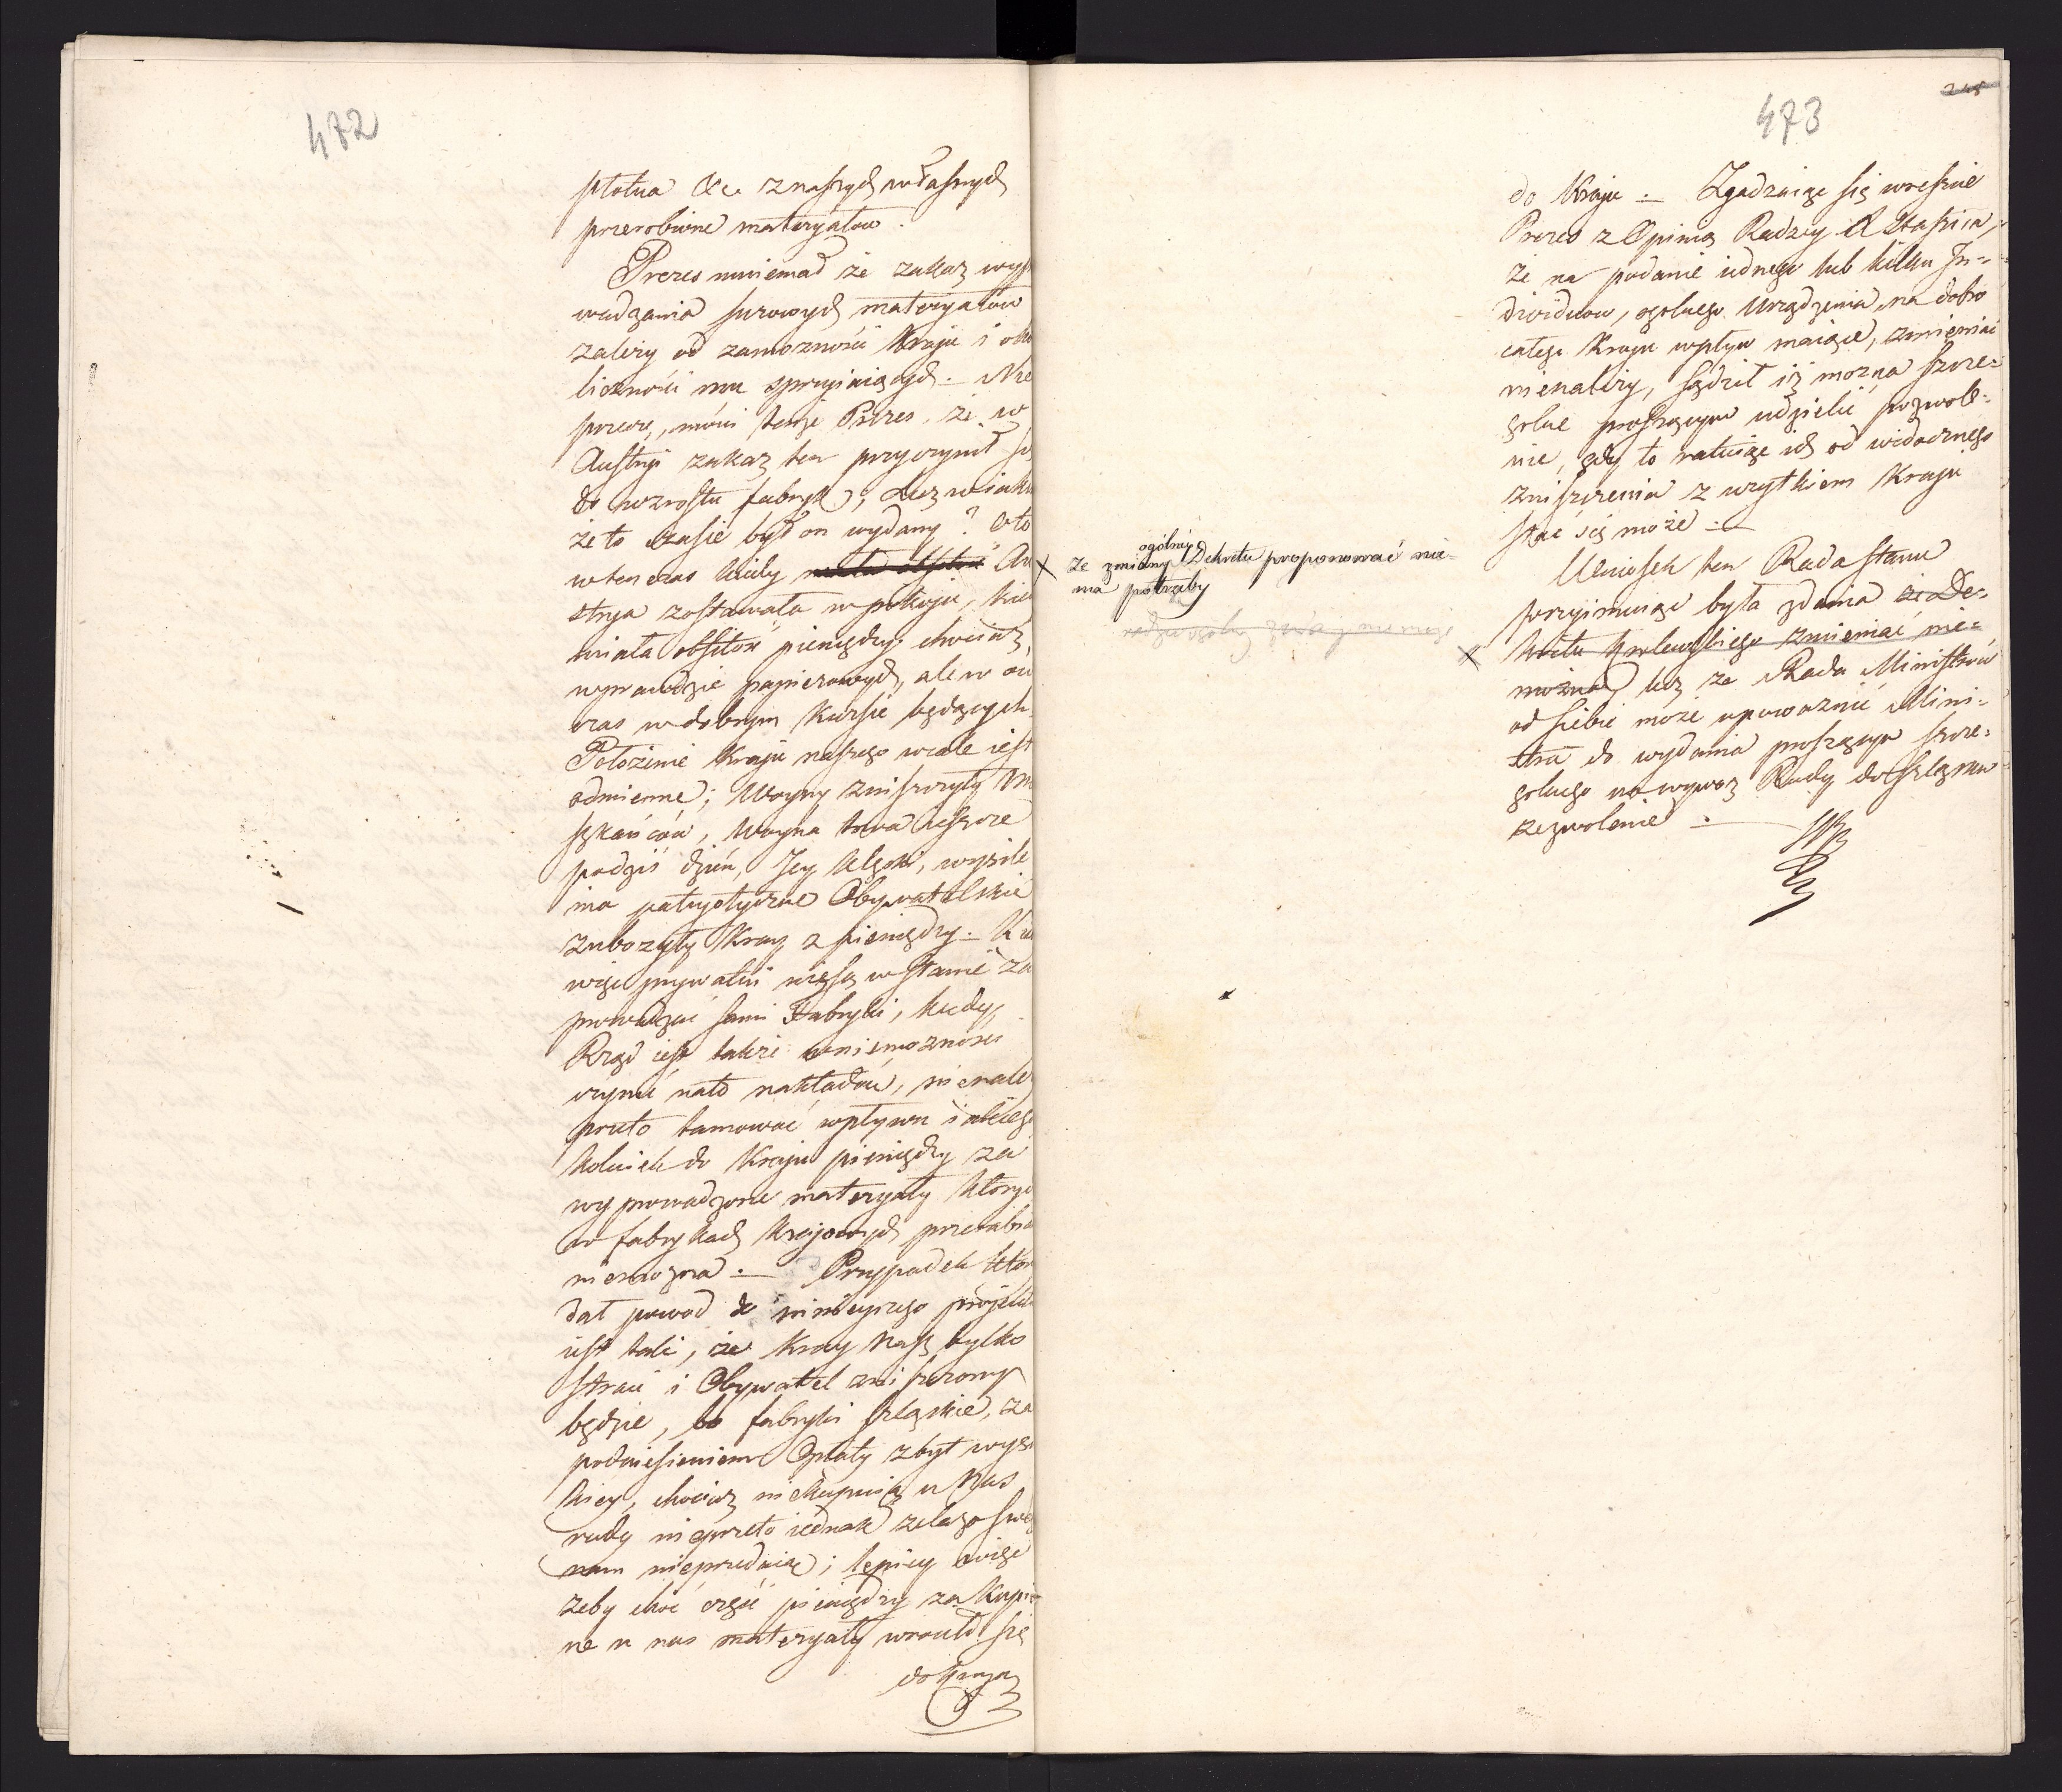 472
płótna &c. z naszych własnych
przerobione materyałów.
Prezes mniemał że zakaz wyp
wadzania surowych materyałów
zależy od zamożności Kraju i oko
liczności mu sprzyiaiących. — Nie
przeczę, mówi tenże Prezes, że w
Austryi zakaz ten przyczynił się
do wzrostu fabryk; Lecz w iakim
że to czasie był on wydany? Oto
wtenczas kiedy miała obfitość Au
strya zostawała w pokoju, kie
miała obfitość pieniędzy chociaż
wprawdzie papierowych, ale w ow
czas w dobrym kursie będących.
Położenie Kraju naszego wcale iest
odmienne; Woyny zniszczyły mi
szkańców, Woyna trwa ieszcze
podziś dzień, Jey klęski, wysile
nia patryotyczne Obywatelskie
zubożyły Kray z pieniędzy. — Kie
więc prywatni nie są w stanie za
prowadzać sami Fabryki, kiedy
Rząd iest także w niemożności
czynić na to nakładów, nienale
przeto tamować wpływu iakiego
kolwiek do Kraju pieniędzy za
wyprowadzone materyały których
w fabrykach Krajowych przerabia
niemożna. — Przypadek któr
dał powod do ninieyszego projektu
iest taki, że Kray nasz tylko
straci i Obywatel zniszczony
będzie, bo fabryki szląskie, za
podniesieniem Opłaty zbyt wyso
kiey, chociaż niekupuią u nas
rudy nieprzeto iednak żelaza swe
nam nieprzedaią; lepiey więc
żeby choć część pieniędzy za kupio
ne u nas materyały wrócił się
do Kraju
245
473
do Kraju. — Zgadzaiąc się wreszcie
Prezes z Opinią Radzcy Stasica,
że na podanie iednego lub kilku In=
dividuow, ogolnego Urządzenia, na dobro
całego Kraju wpływ maiące, zmieniać
nienależy, sądził iż można szcze=
golne proszącym udzielić pozwole=
nie, gdy to ratuiąc ich od widocznego
zniszczenia z użytkiem Kraju
stać się może. —
Wniosek ten Rada Stanu
przyimuiąc była zdania że De=
kretu Krolewskiego zmieniać nie=
można lecz że Rada Ministrów
od siebie może upoważnić Mini=
stra do wydania proszącym szcze=
golnego na wywoz Rudy do Szląska
zezwolenie. —
ogólney
X że zmiany Dekretu proponować nie=
ma potrzeby
X